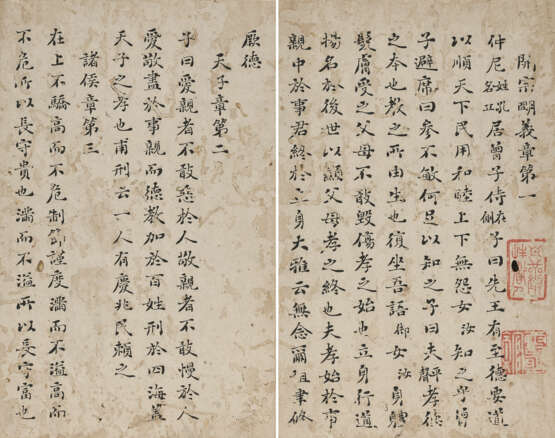 開宗明義章第一
仲尼姓孔名丘居曾子侍在側子曰先王有至德要道
以順天下民用和睦上下無怨女汝知之乎曾
子避席曰參不敏何足以知之子曰夫聲孝德
之本也教之所由生也復坐吾語御女汝身體
髮膚受之父母不敢毀傷孝之始也立身行道
揚名於後世以顯父母孝之終也夫孝始於事
親中於事君終於立身大雅云無念爾祖聿修
厥德
天子章第二
子曰愛親者不敢惡於人敬親者不敢慢於人
愛敬盡於事親而德教加於百姓刑於四海蓋
天子之孝也甫刑云一人有慶兆民賴之
諸侯章第三
在上不驕高而不危制節謹度滿而不溢高而
不危所以長守貴也滿而不溢所以長守富也